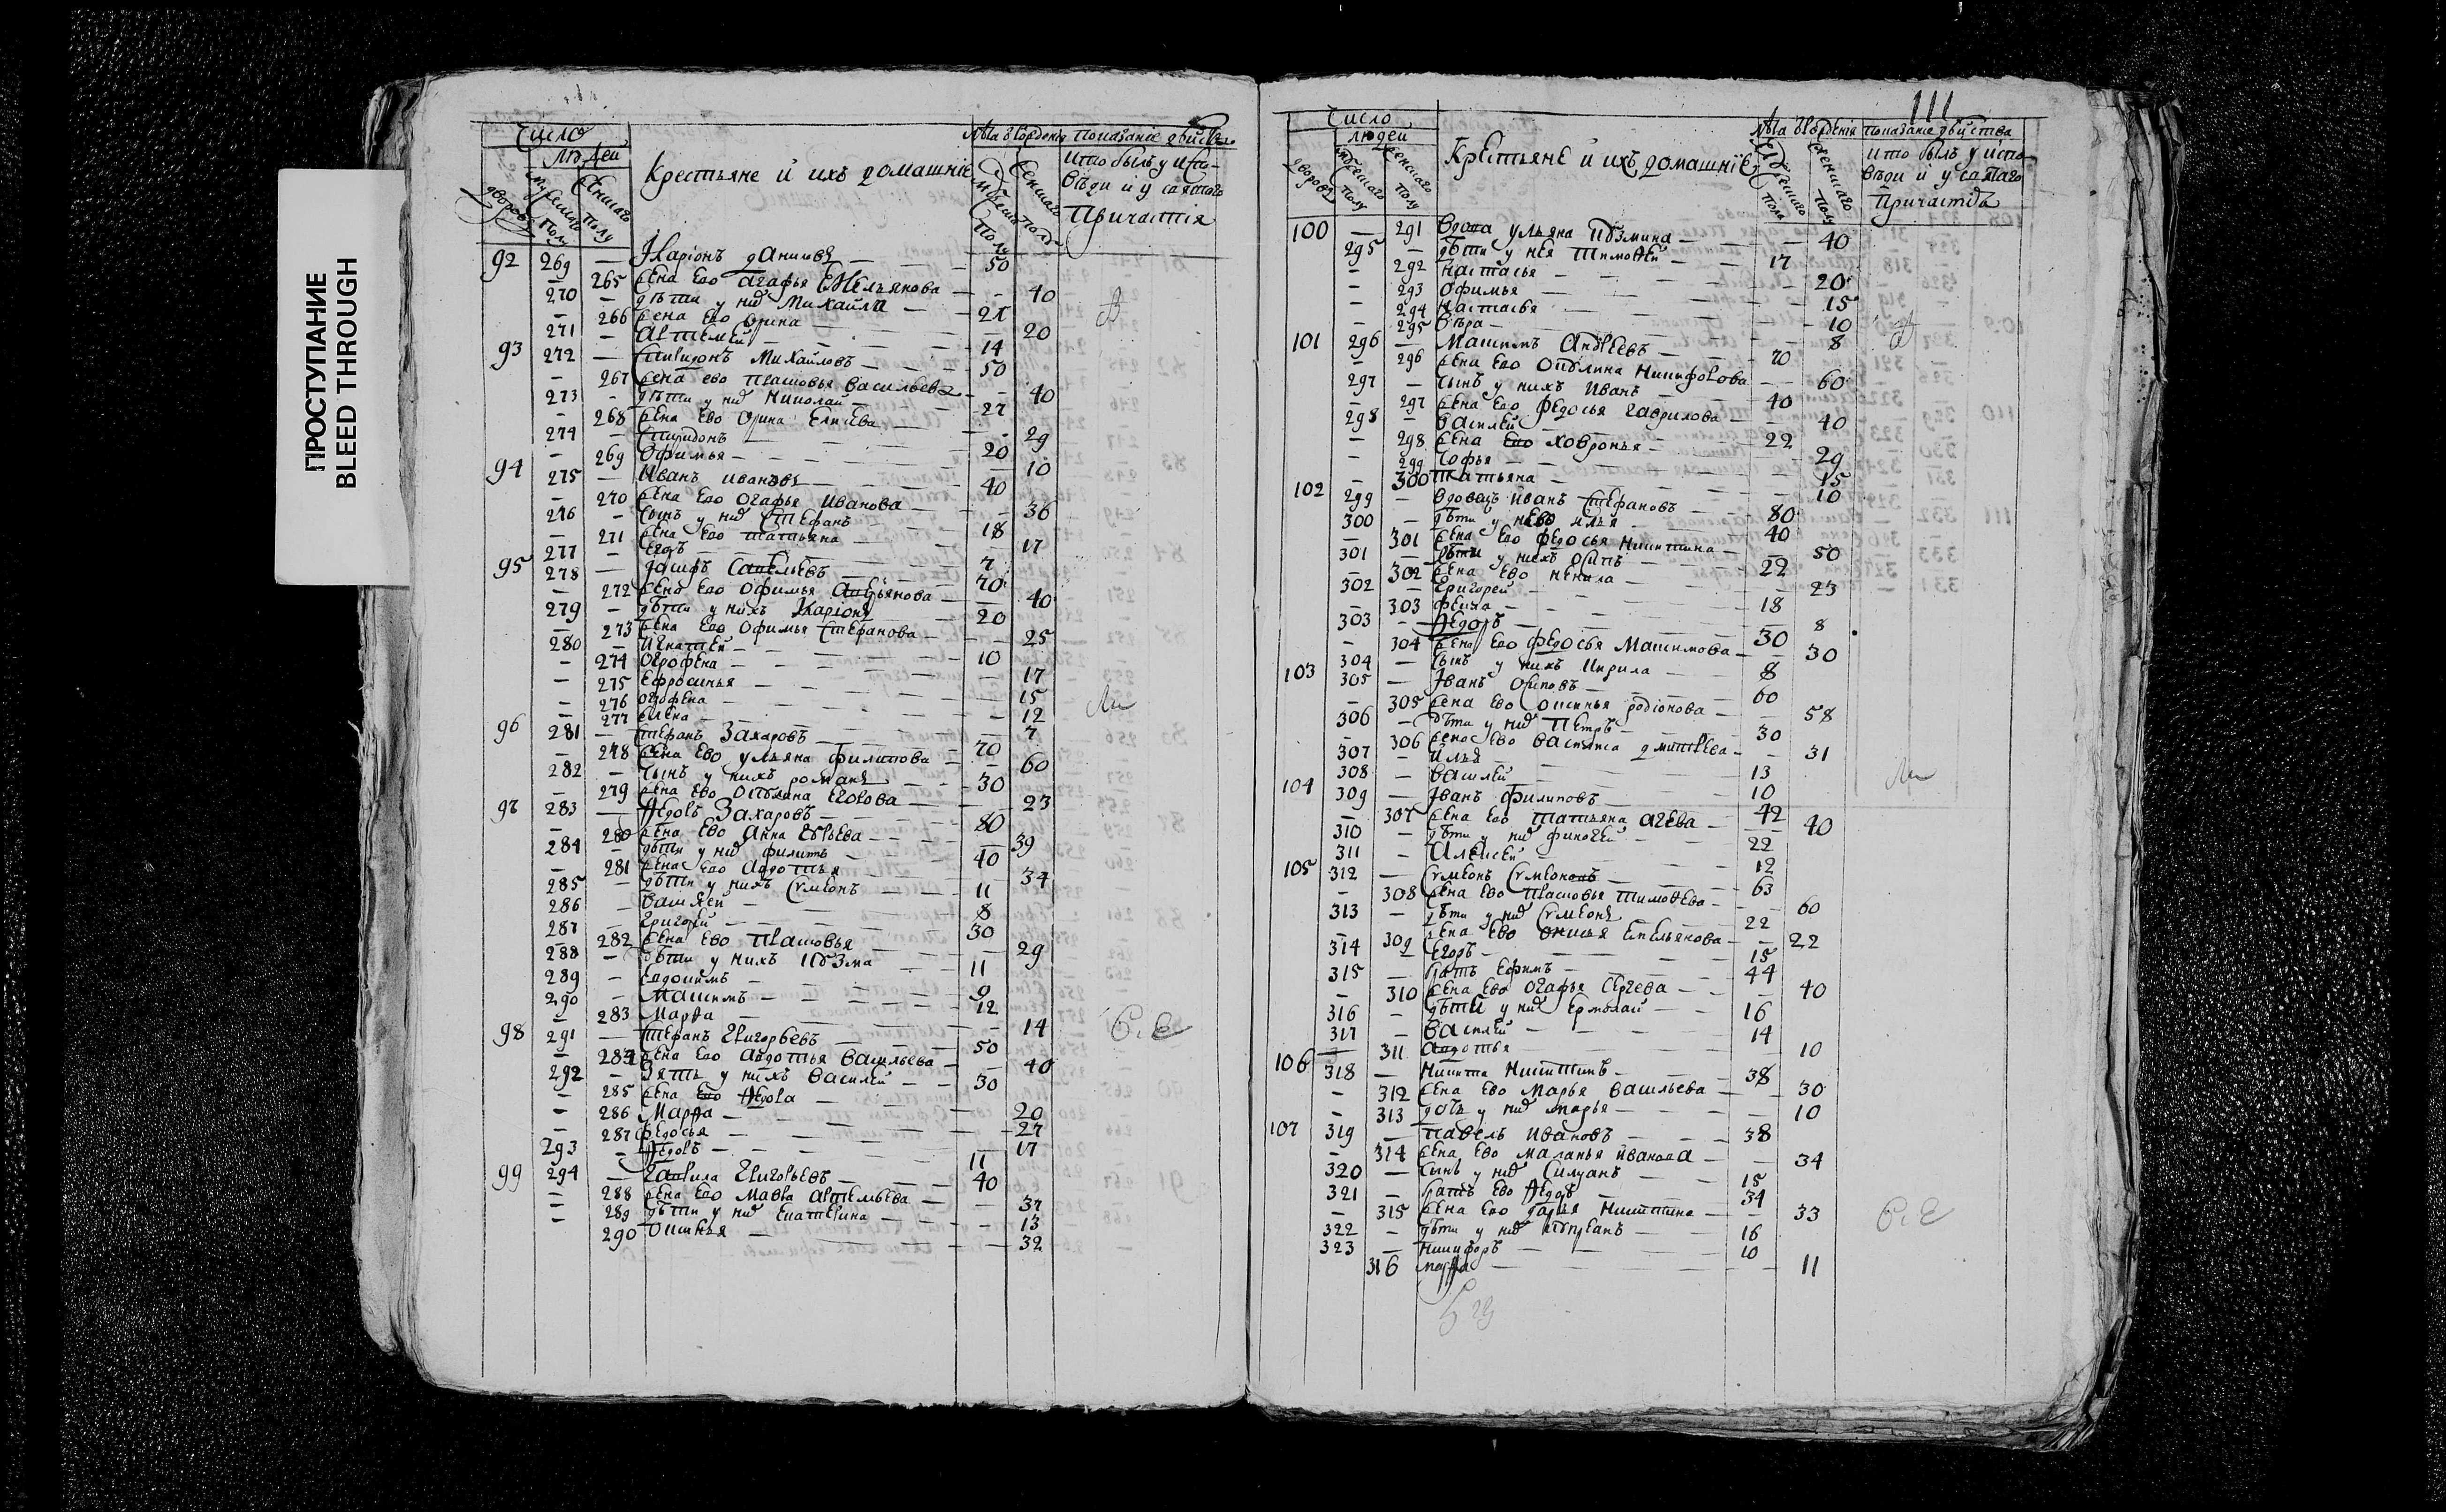 ПРОСТУПАНИЕ
BLEED THROUGH
Число
Людей
дворовъ
мужеска полу
женскаго полу
Крестьяне и ихъ домашніе
лѣта отъ рожденія
показаніе дѣйства
кто былъ у испо-
вѣди и у святаго
причастія
92 269 — Іларіонъ даниловъ — 50
— 265 жена Ево агафья Емельянова — 40
270 — дѣти у них Михайла — 21
— 266 жена Ево Орина — 20
271 — Артемей — 14
93 272 — Спиридонъ Михайловъ — 50
— 267 жена ево Прасковья васильева — 40
273 — дѣти у них Николай — 27
— 268 жена Ево Орина — 29
274 — Спиридонъ — 20
— 269 Офимья — 10
94 275 — Иванъ ивановъ — 40
— 270 жена Ево Огафья Иванова — 36
276 — сынъ у них Стефанъ — 18
— 271 жена Ево татьяна — 17
277 — Егоръ — 7
95 278 — Іосифъ Савельевъ — 70
— 272 жена Ево Офимья — 40
279 — дѣти у нихъ Іларионъ — 20
— 273 жена Ево Офимья Стефанова — 25
280 — Игнатей — 10
— 274 Огрофена — 17
— 275 Ефросинья — 15
— 276 Огрофена — 12
— 277 елена — 7
96 281 — Стефанъ Захаровъ — 70
— 278 жена Ево ульяна филипова — 60
282 — сынъ у нихъ романъ — 30
— 279 жена Ево Окулина Егорова — 23
97 283 — Ѳедоръ Захаровъ — 80
— 280 жена Ево Анна — 39
284 — дѣти у них филипъ — 40
— 281 жена Ево Авдотья — 34
285 — дѣти у нихъ Сѵмеонъ — 11
286 — василей — 8
287 — Григорей — 30
— 282 жена Ево Прасковья — 29
288 — дѣти у нихъ Кузма — 11
289 — Евдокимъ — 9
290 — Максимъ — 12
— 283 Марѳа — 14
98 291 — Стефанъ Григорьевъ — 50
— 284 жена Ево авдотья васильева — 40
292 — зять у нихъ василей — 30
— 285 жена Ево Ѳедора — 20
— 286 Марѳа — 27
— 287 федосья — 17
293 — Ѳедоръ — 11
99 294 — Гаврила Григорьевъ — 40
— 288 жена Ево Мавра артемьева — 37
— 289 дѣти у них Екатерина — 13
— 290 Оксинья — 32
111
Число
людей
дворовъ
мужескаго полу
женскаго полу
Крестьяне и ихъ домашніе
лѣта отъ рожденія
показаніе дѣйства
кто былъ у испо-
вѣди и у святаго
Причастія
100 — 291 вдова ульяна Кузмина — 40
295 — дѣти у нея Тимоѳей — 17
— 292 настасья — 20
— 293 Офимья — 15
— 294 настасья — 10
— 295 вѣра — 8
101 296 — Максимъ Андреевъ — 70
— 296 жена Ево Окулина Никифорова — 60
297 — сынъ у нихъ Иванъ — 40
— 297 жена Ево федосья гаврилова — 40
298 — василей — 22
— 298 жена Ево ховронья — 29
— 299 Софья — 15
— 300 татьяна — 10
102 299 — вдовецъ иванъ Стефановъ — 80
300 — дѣти у нево илья — 40
— 301 жена Ево федосья Никитина — 50
301 — дѣти у нихъ Осипъ — 22
— 302 жена Ево ненила — 23
302 — Григорей — 18
— 303 фекла — 8
303 — Ѳедоръ — 30
— 304 жена Ево федосья Максимова — 30
304 — сынъ у нихъ Кирила — 8
103 305 — Іванъ Осиповъ — 60
— 305 жена Ево Оксинья родіонова — 58
306 — дѣти у них Петръ — 30
— 306 жена Ево василиса дмитрева — 31
307 — илья — 13
308 — василей — 10
104 309 — Іванъ филиповъ — 42
— 307 жена Ево татьяна агева — 40
310 — дѣти у них финогей — 22
311 — Алексей — 12
105 312 — Сѵмеонъ Сѵмеоновъ — 63
— 308 жена Ево Прасковья тимоѳева — 60
313 — дѣти у них Сѵмеонъ — 22
— 309 жена Ево Емельянова — 22
314 — Егоръ — 15
315 — братъ Ефимъ — 44
— 310 жена Ево Огафья Сергева — 40
316 — дѣти у них Ермолай — 16
317 — василей — 14
— 311 авдотья — 10
106 318 — Никита Никитинъ — 38
— 312 жена Ево Марья васильева — 30
— 313 дочь у них марья — 10
107 319 — павелъ Ивановъ — 38
— 314 жена Ево маланья иванова — 34
320 — сынъ у них Силуанъ — 15
321 — братъ Ево Ѳедоръ — 34
— 315 жена Ево дарья Никитина — 33
322 — дѣти у них Купреанъ — 16
323 — никифоръ — 10
316 марѳа — 11